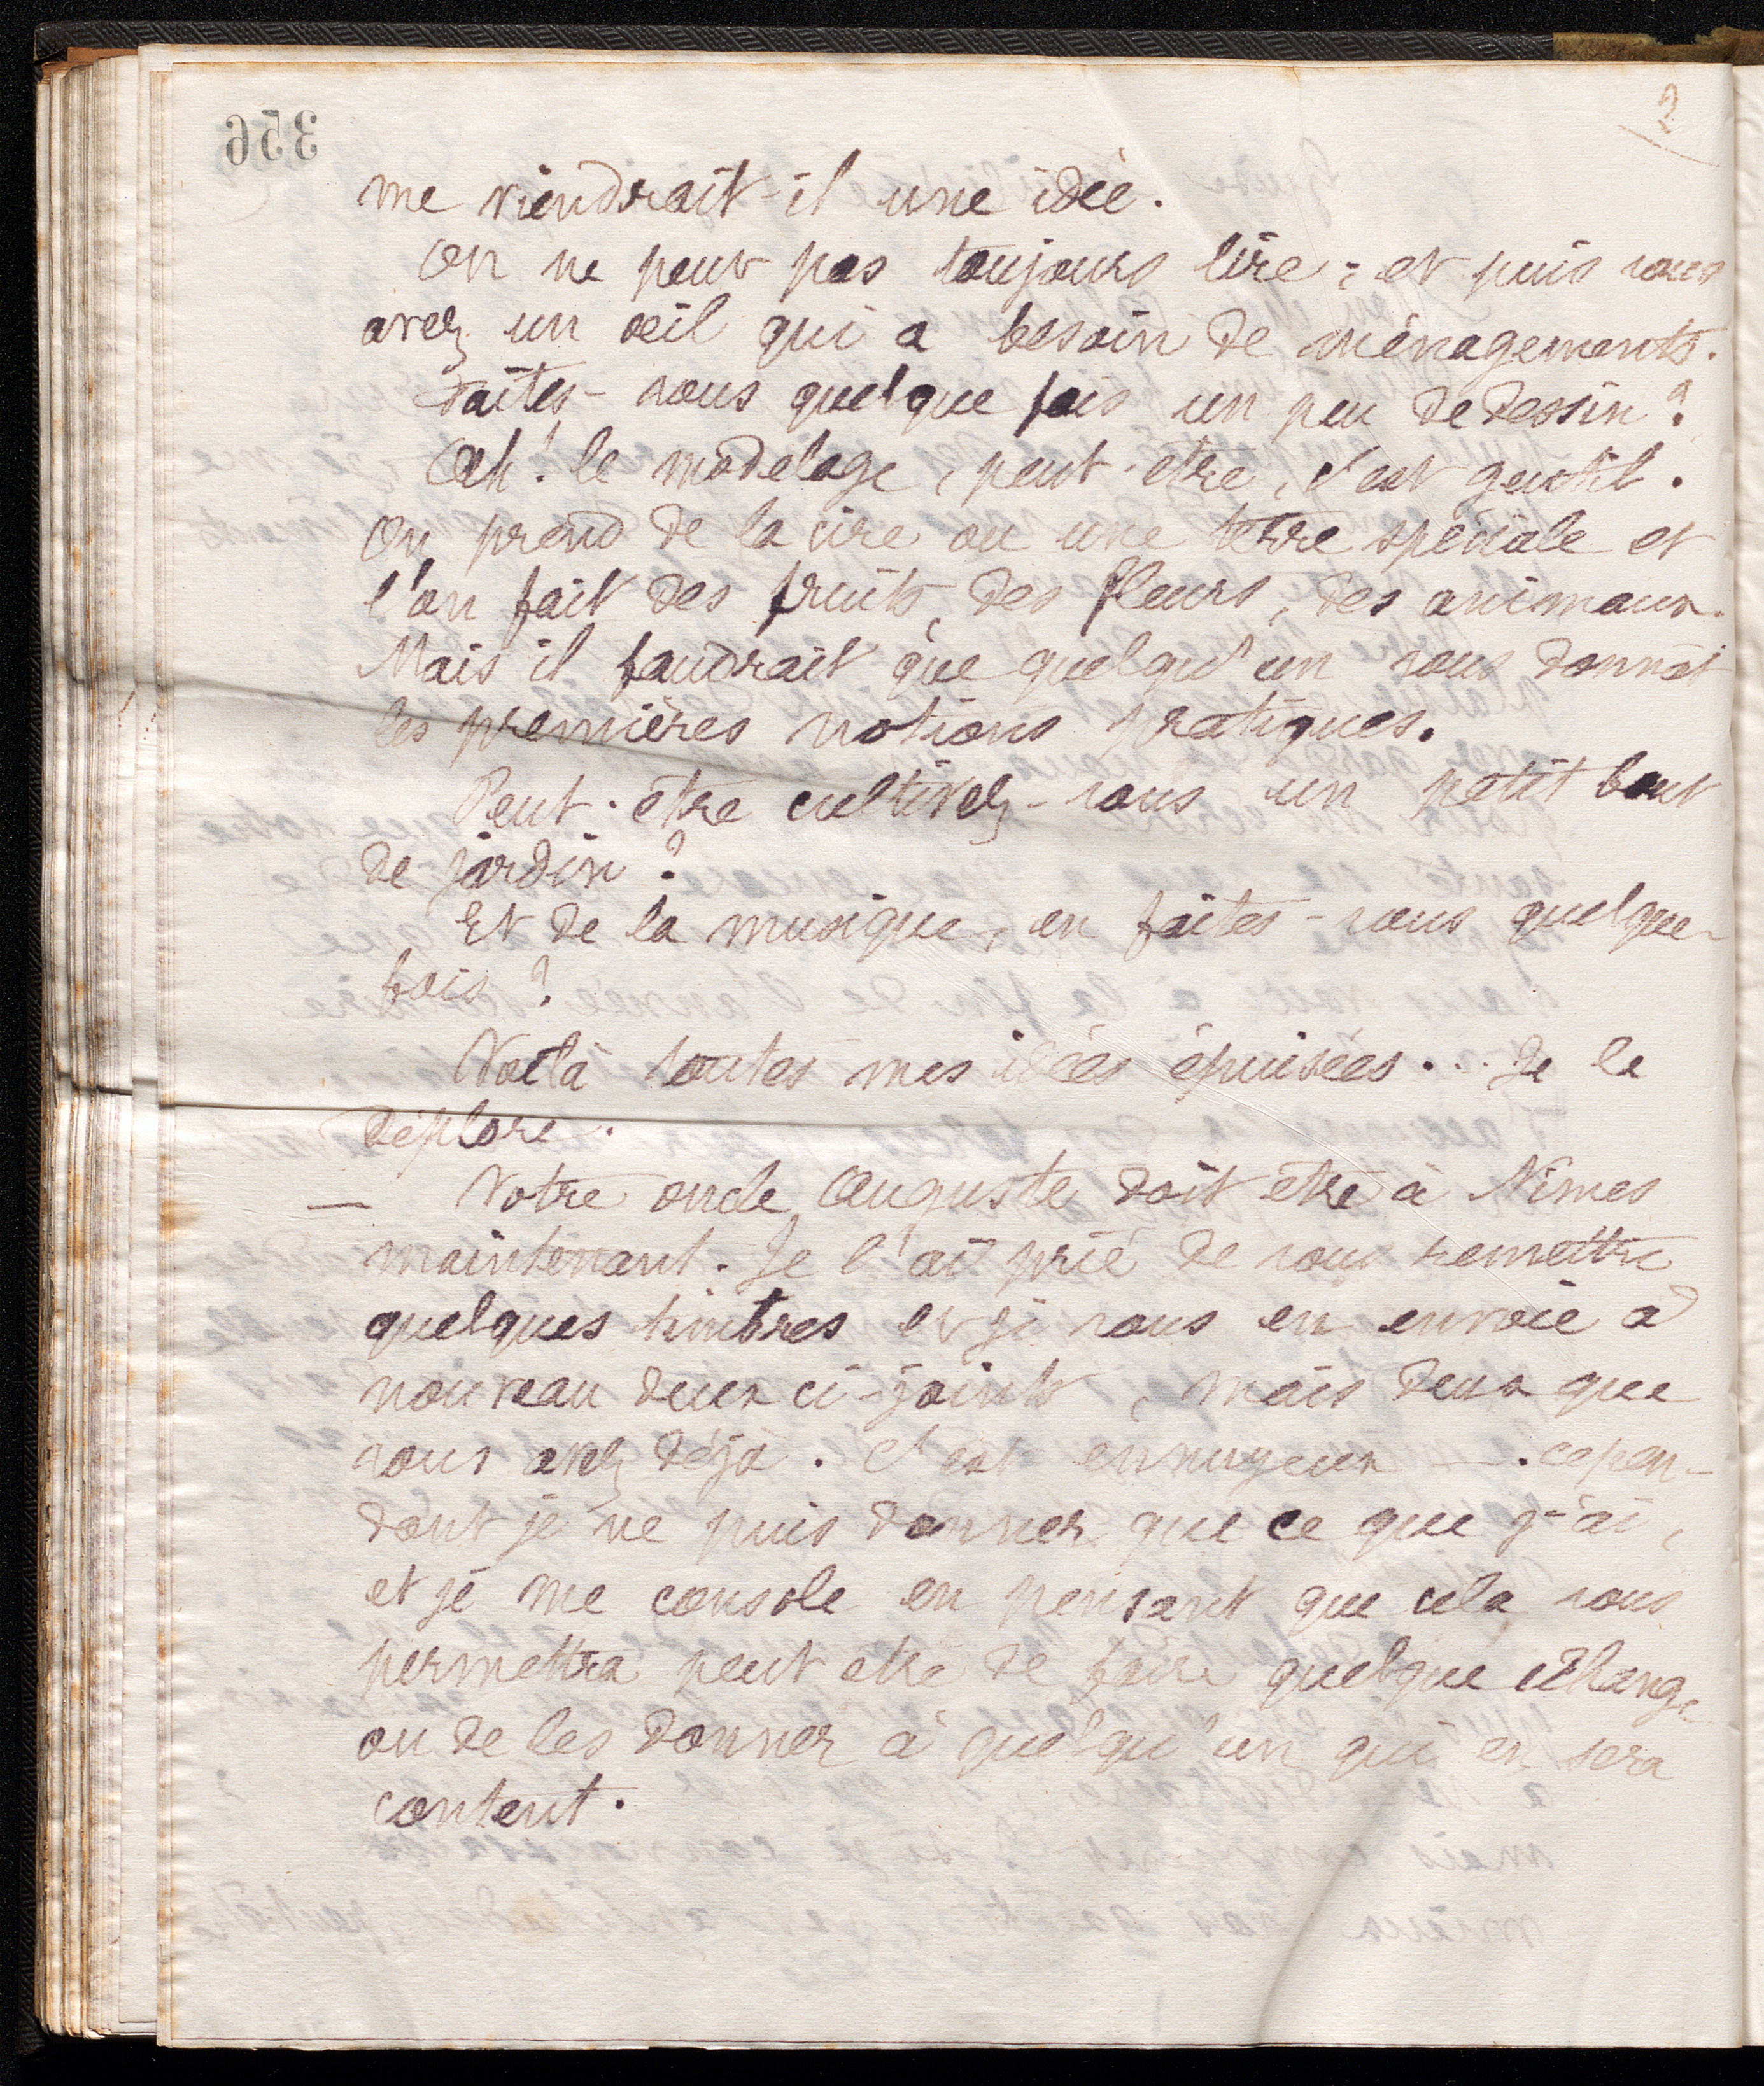 356
2
me viendrait-il une idée.
On ne peut pas toujours lire ; et puis vous
avez un œil qui a besoin de ménagements.
Faites-vous quelque fois un peu de dessin ?
Ah ! le modelage, peut-être, c'est gentil.
On prend de la cire ou une terre spéciale et
l'on fait des fruits, des fleurs, des animaux.
Mais il faudrait que quelqu'un vous donnât
les premières notions pratiques.
Peut-être cultivez-vous un petit bout
de jardin ?
Et de la musique, en faites-vous quelque-
fois ?
Voilà toutes mes idées épuisées... Je le
déplore.
— Votre oncle Auguste doit être à Nimes
maintenant. Je l'ai prié de vous remettre
quelques timbres et je vous en envoie à
nouveau deux ci-joints, mais deux que
vous avez déjà. C'est ennuyeux —. cepen-
dant je ne puis donner que ce que j'ai,
et je me console en pensant que cela vous
permettra peut être de faire quelque échange
ou de les donner à quelqu'un qui en sera
content.